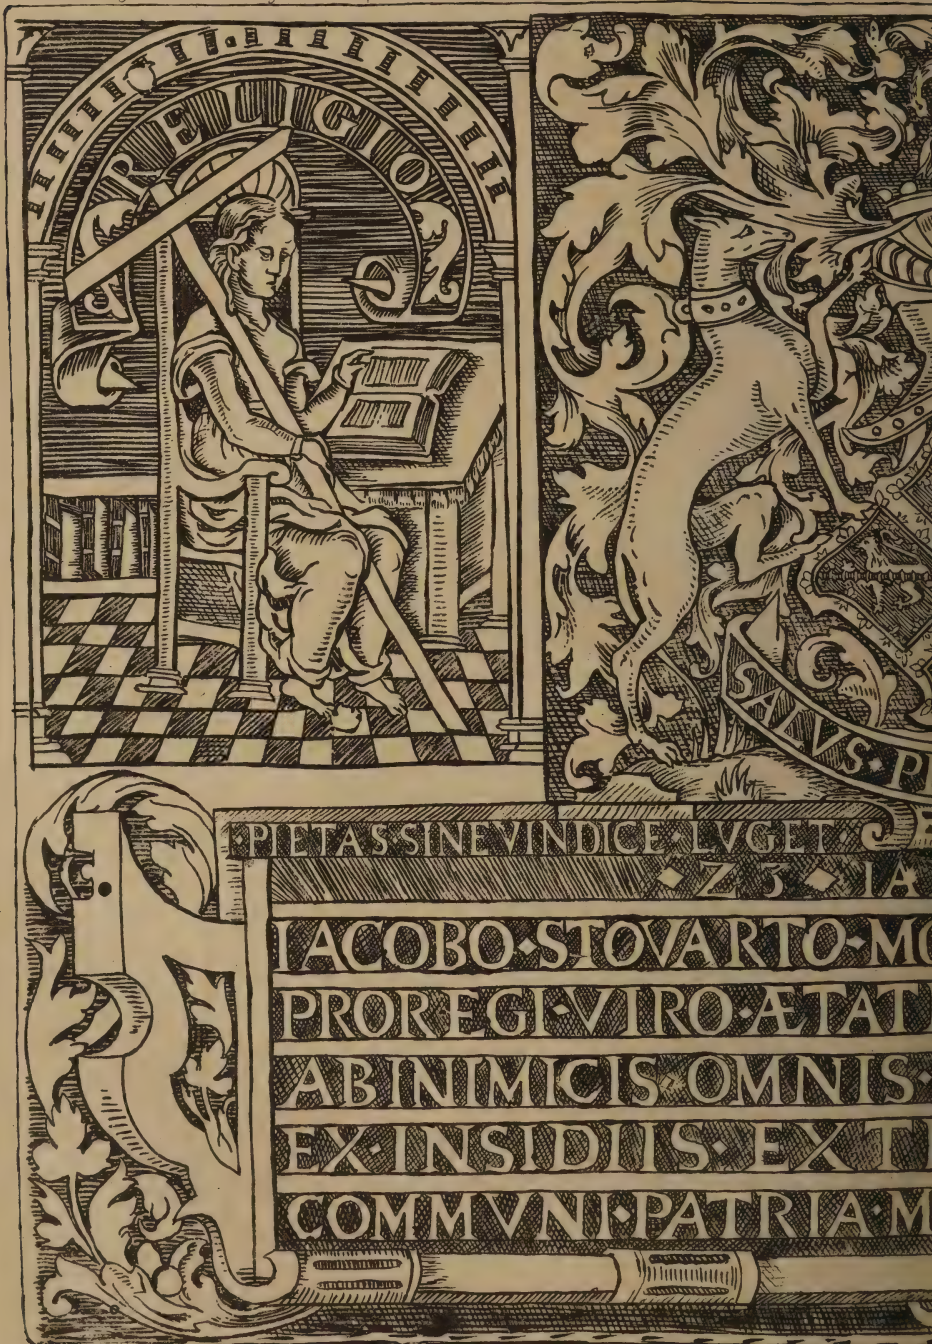 RELIGIO
SALVS·P
·PIETAS SINE VINDICE·LVGET·
·Z3·IA
IACOBO·STOVARTO·MO
PROREGI·VIRO·ÆTAT
AB INIMICIS·OMNIS·
EX·INSIDIIS·EXTI
COMMVNI·PATRIA·M